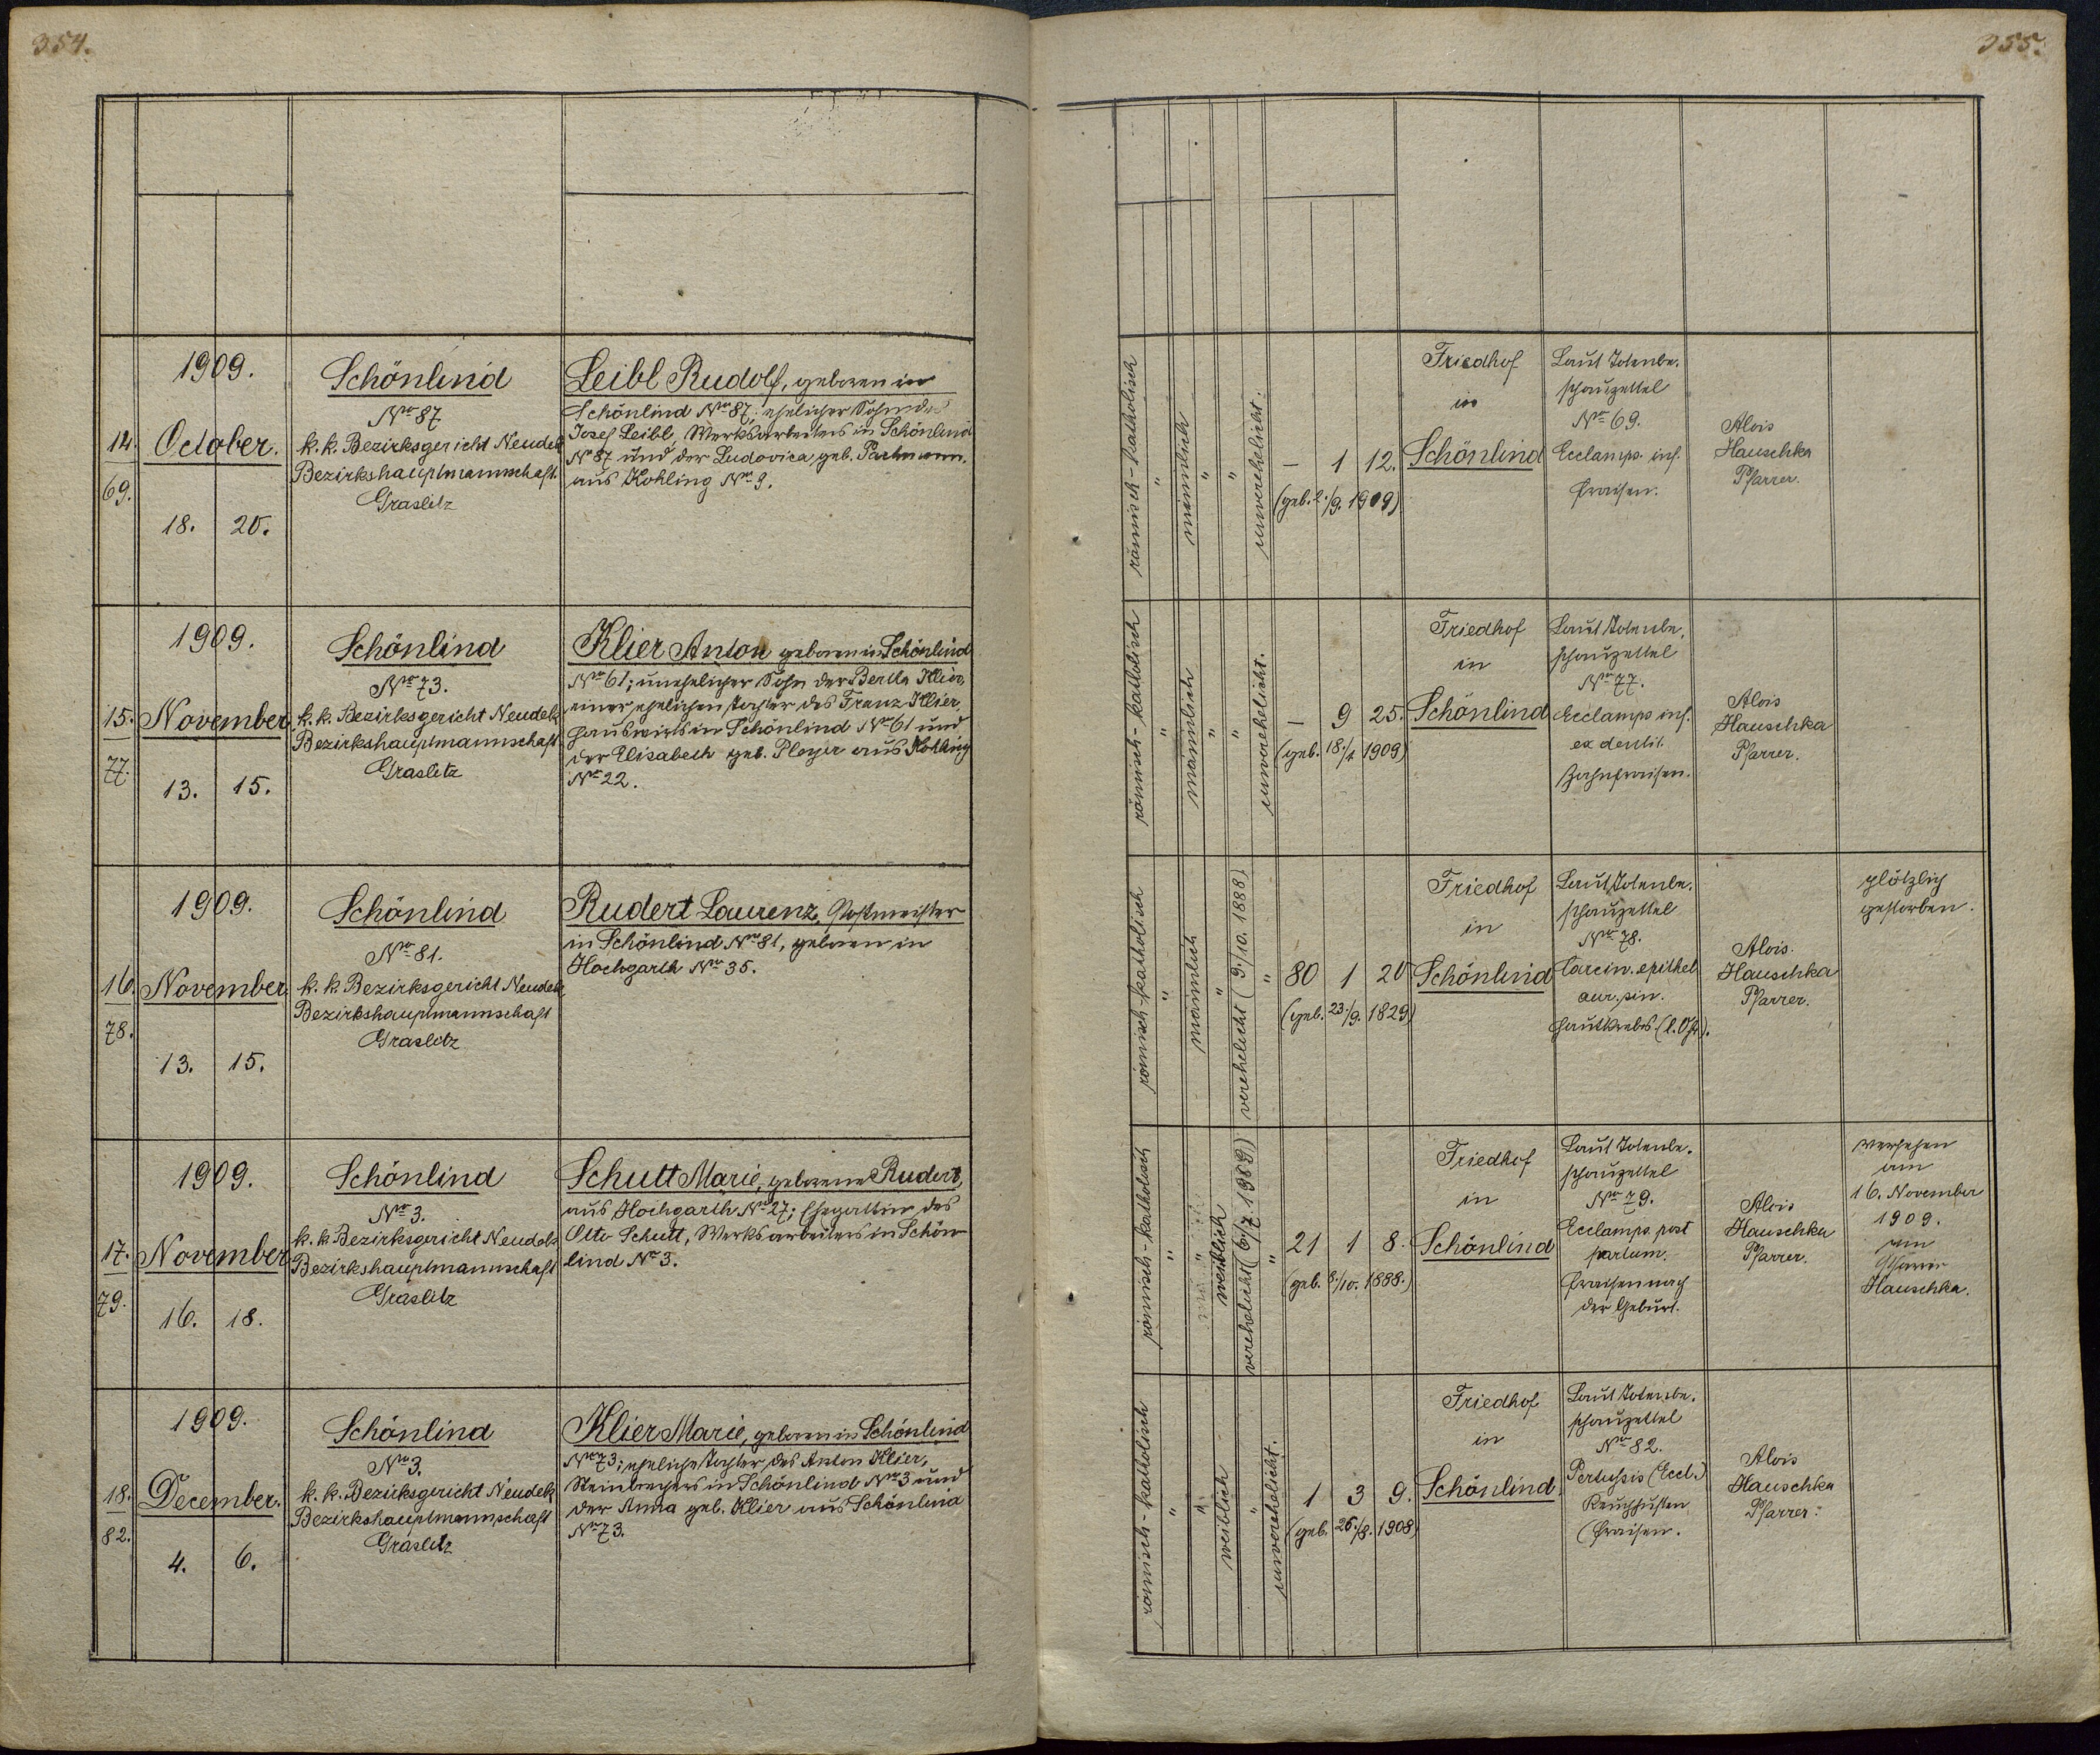 354.
1909.
14.
69.
October.
18. 20.
Schönlind
Nro 87
k. k. Bezirksgericht Neudek
Bezirkshauptmannschaft.
Graslitz
Leibl Rudolf, geboren in
Schönlind Nro 87; ehelicher Sohn des
Josef Leibl, Werksarbeiters in Schönlind
No 87 und der Ludovica, geb. Pachmann.
aus Kohling Nro 9.
1909.
15.
77.
November
13. 15.
Schönlind
Nro 73.
k. k. Bezirksgericht Neudek
Bezirkshauptmannschaft
Graslitz
Klier Anton geboren in Schönlind
Nro 61; unehelicher Sohn der Bertha Klier,
einer ehelichen Tochter des Franz Klier,
Hauswirts in Schönlind Nro 61 und
der Elisabeth geb. Ployer aus Kohling
Nro 22.
1909.
16.
78.
November
13. 15.
Schönlind
Nro 81.
k. k. Bezirksgericht Neudek
Bezirkshauptmannschaft
Graslitz
Rudert Laurenz, Postmeister
in Schönlind Nro 81, geboren in
Hochgarth Nro 35.
1909.
17.
79.
November
16. 18.
Schönlind
Nro 3.
k. k. Bezirksgericht Neudek
Bezirkshauptmannschaft
Graslitz
Schutt Marie, geborene Rudert,
aus Hochgarth Nro 27; Ehegattin des
Otto Schutt, Werksarbeiters in Schön
lind Nro 3.
1909.
18.
82.
December.
4. 6.
Schönlind
Nro 3.
k. k. Bezirksgericht Neudek
Bezirkshauptmannschaft
Graslitz
Klier Marie, geboren in Schönlind
Nro 73; eheliche Tochter des Anton Klier,
Steinbrechers in Schönlind Nro 3 und
der Anna geb. Klier aus Schönlind
Nro 73.
355.
römisch-katholisch
"
männlich
"
"
unverehelicht.
– 1 12.
(geb. 2./9. 1909)
Friedhof
in
Schönlind
Laut Totenbe.
schauzettel
Nro 69.
Ecclamps. inf.
Fraisen.
Alois
Hauschka
Pfarrer.
römisch-katholisch
"
männlich
"
"
unverehelicht.
– 9 25.
(geb. 18./1 1909)
Friedhof
in
Schönlind
Laut Totenbe.
schauzettel
Nro 77.
Ecclamps inf.
ex dentit.
Zahnfraisen.
Alois
Hauschka
Pfarrer.
römisch-katholisch
"
männlich
"
verehelicht (9./10. 1888)
"
80 1 20
(geb. 23./9. 1829)
Friedhof
in
Schönlind
Laut Totenbe.
schauzettel
Nro 78.
Carcin. epithel
aur. sin.
Hautkrebs (l. Ohr).
Alois
Hauschka
Pfarrer.
plötzlich
gestorben.
römisch-katholisch
"
"
weiblich
verehelicht (6/7 1909)
"
21 1 8.
(geb. 8./10. 1888.)
Friedhof
in
Schönlind
Laut Totenbe.
schauzettel
Nro 79.
Ecclamps. post
partum.
Fraisen nach
der Geburt.
Alois
Hauschka
Pfarrer.
versehen
am
16. November
1909.
von
Pfarrer
Hauschka.
römisch-katholisch
"
"
weiblich
"
unverehelicht.
1 3 9.
(geb. 26./8. 1908)
Friedhof
in
Schönlind
Laut Totenbe.
schauzettel
Nro 82.
Pertussis (Eccl.)
Keuchhusten
(Fraisen.
Alois
Hauschka
Pfarrer.